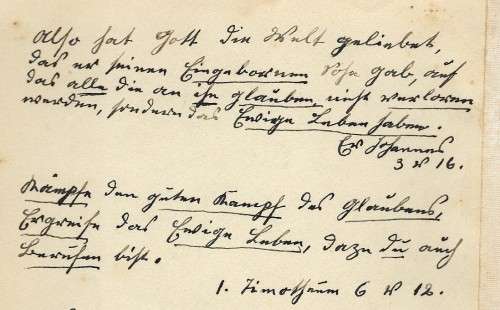 Also hat Gott die Welt geliebet,
das er seinen Eingebornen Sohn gab, auf
das alle die an ihn glauben, nicht verloren
werden, sondern das Ewige Leben haben.
Ev Johannes
3 v 16.
Kämpfe den guten Kampf des Glaubens,
Ergreife das Ewige Leben, dazu du auch
Berufen bist.
1. Timotheum 6 v 12.